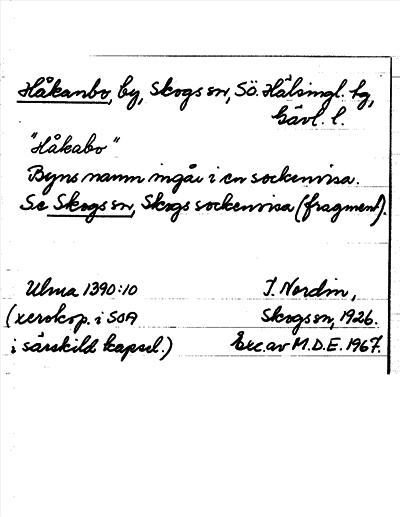 Håkanbo, by, Skogs sn, Sö. Hälsingl. hg,
Gävl. l.
"Håkabo"
Byns namn ingår i en sockenvisa.
Se Skogs sn, Skogs sockenvisa (fragment).
Ulma 1390:10
(xerokop. i SOA
i särskild kapsel.)
J. Nordin,
Skogs sn, 1926.
Exc. av M.D.E. 1967.